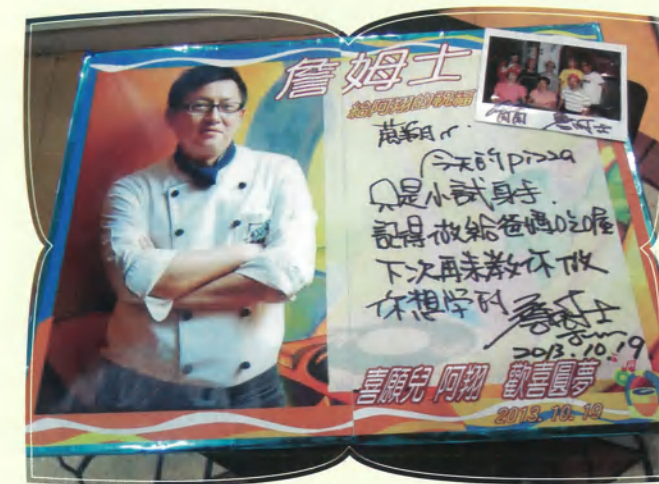 詹姆士
給阿翔的祝福
今天的pizza
只是小試身手.
記得做給爸媽吃喔
下次再來教你做
你想学的
詹姆士
2013.10.19
喜願兒 阿翔 歡喜圓夢
2013.10.19